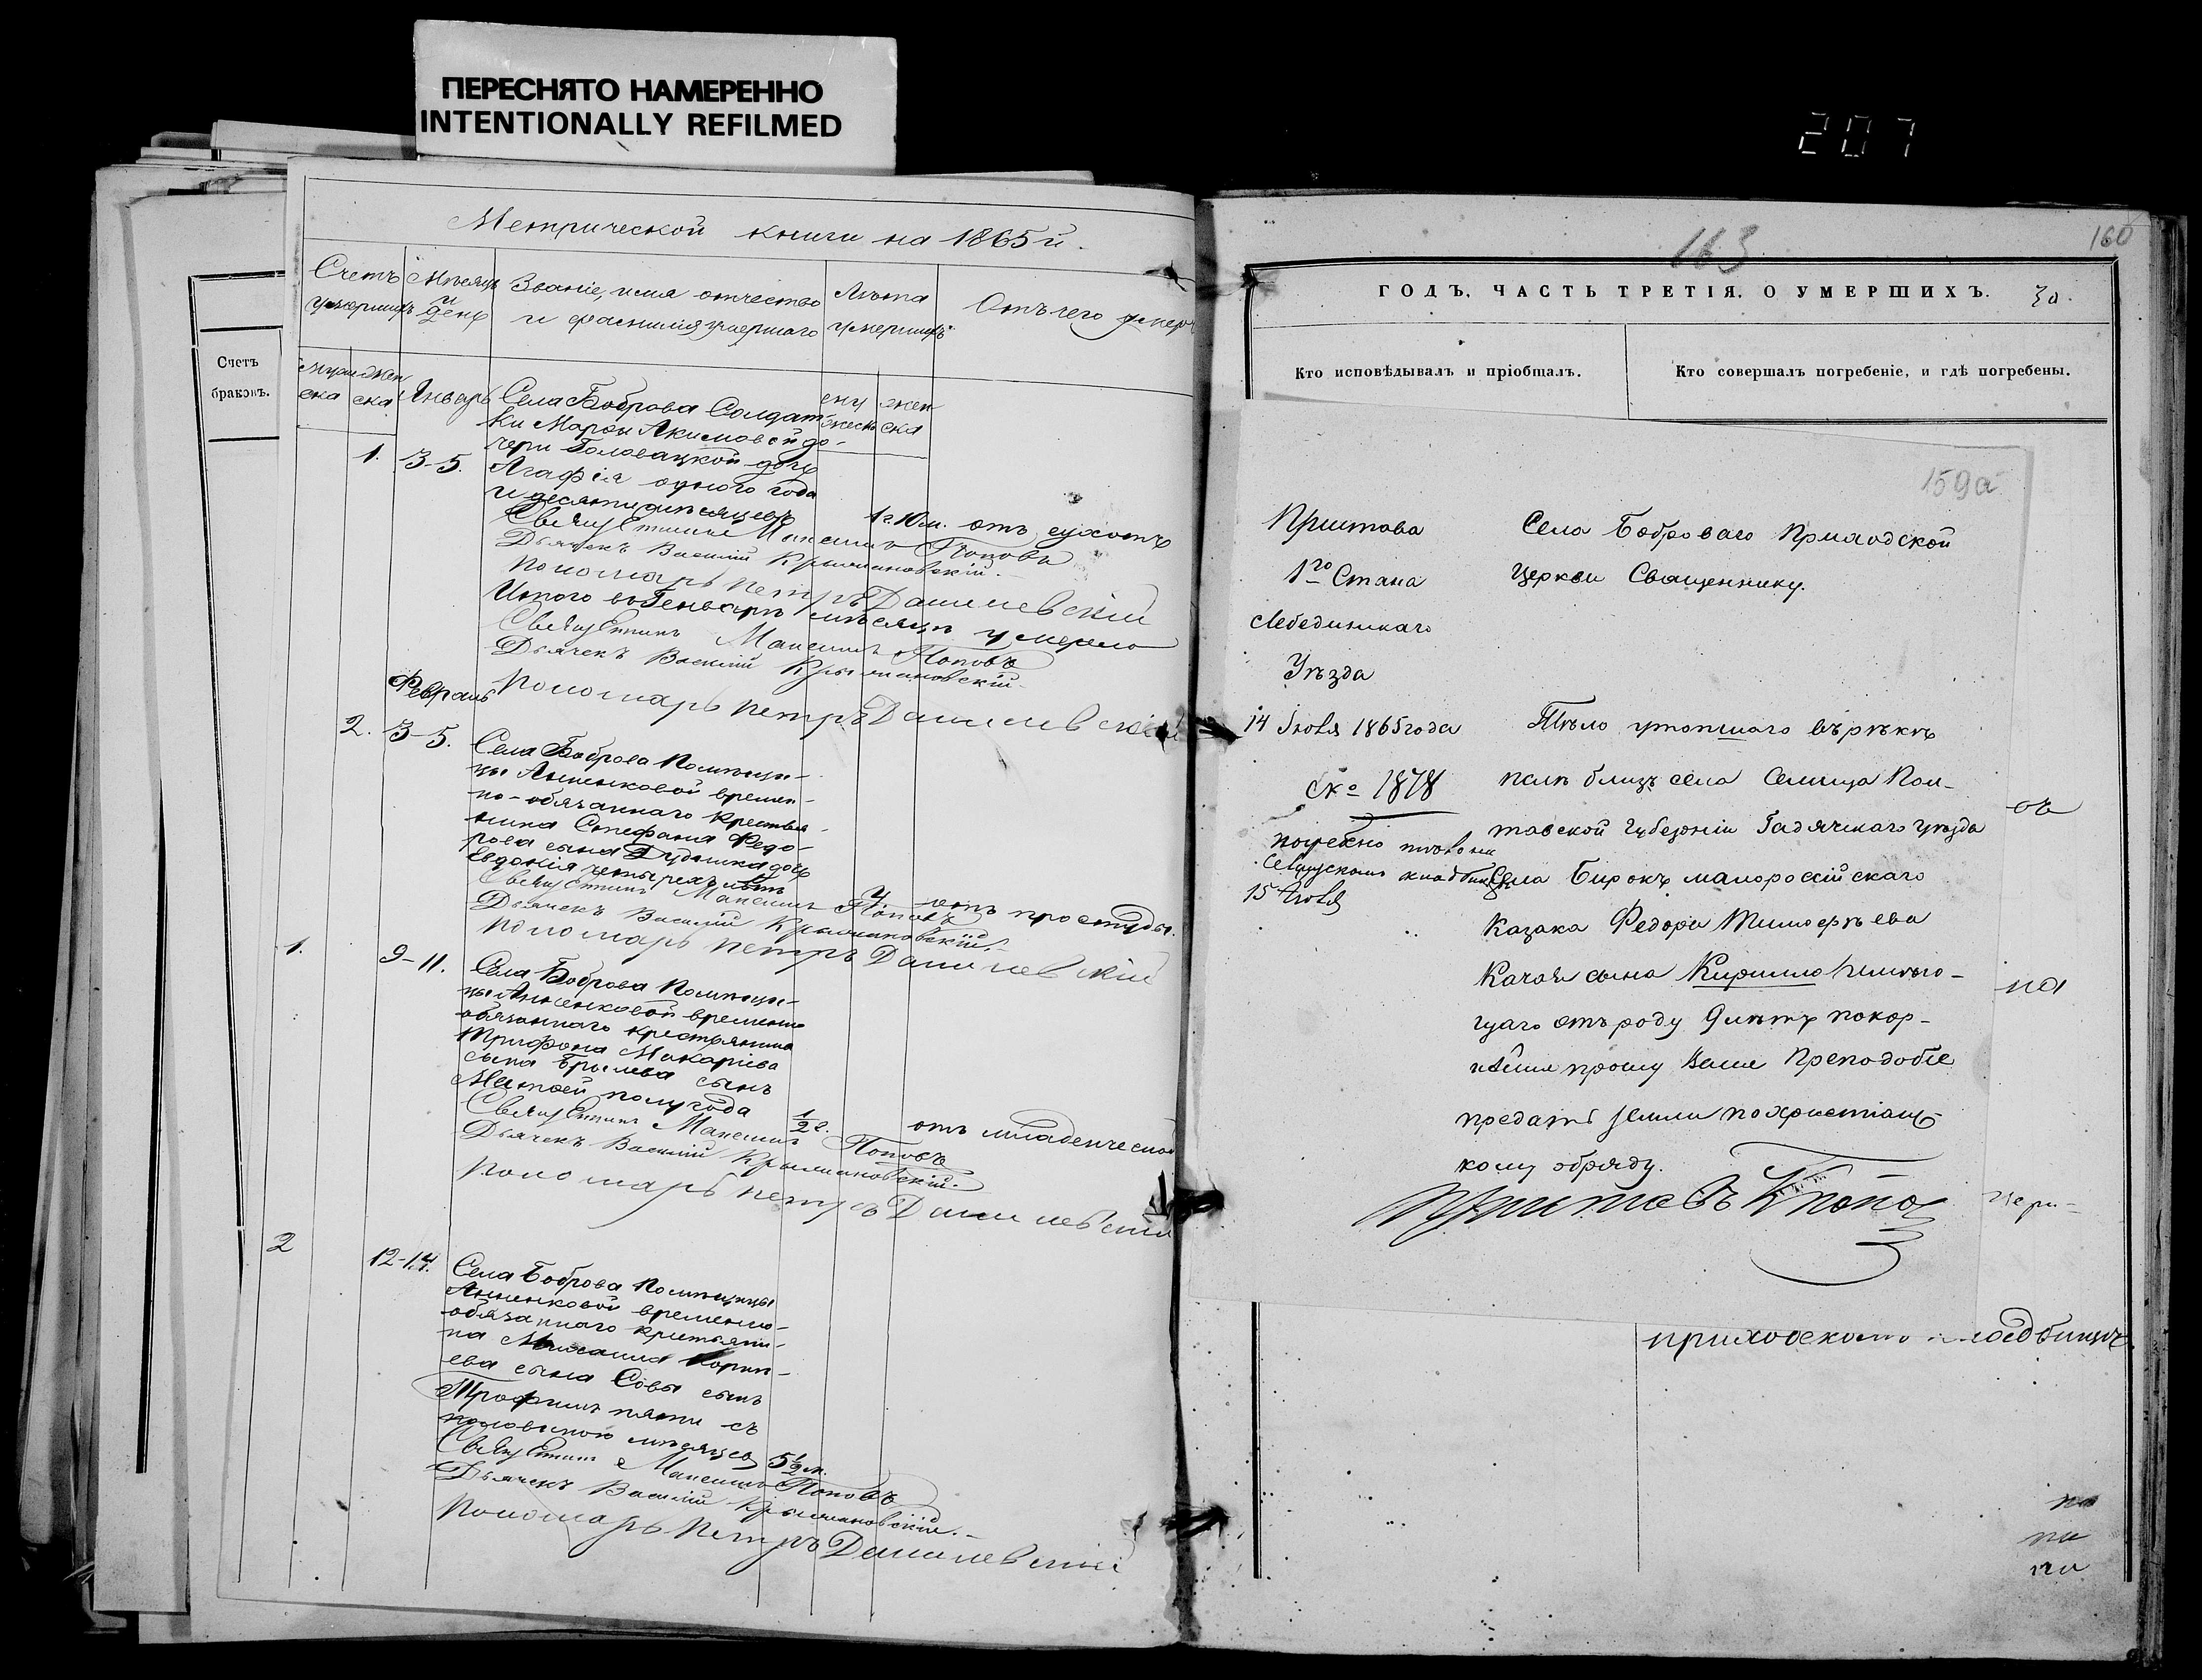 ПЕРЕСНЯТО НАМЕРЕННО
INTENTIONALLY REFILMED
207
Счетъ
браковъ.
Метрической книги на 1865й.
Счетъ
умершихъ
Мѣсяцъ
и
день
Званіе, имя отчество
и фамилія умершаго
Лѣта
умершихъ
Отъ чего умеръ
муже
ска
жен
ска
Январь
Села Боброва Солдат-
ки Марѳы Акимовой до-
чери Головацкой дочь
1. 3-5. Агафія одного года
и десяти мѣсяцевъ
1 г. 10 м. отъ сухотъ
Максимъ Поповъ
Дьячекъ Василій Крыжановскій.
Пономарь Петръ Данилевскій
Итого въ Генварѣ мѣсяцѣ умерло
Максимъ Поповъ
Дьячекъ Василій Крыжановскій
Пономарь Петръ Данилевскій
Февраль
2. 3-5. Села Боброва Помѣщи-
цы Анненковой времен-
но-обязаннаго крестья-
нина Стефана Федо-
рова сына Дудника дочь
Евдокія четырехъ лѣтъ
4 отъ простуды.
Максимъ Поповъ
Дьячекъ Василій Крыжановскій.
Пономарь Петръ Данилевскій
1. 9-11. Села Боброва Помѣщи-
цы Анненковой временно
обязаннаго крестьянина
Трифона Макаріева
сына Брылева сынъ
Матѳей полугода
1/2 г. отъ младенческой
Максимъ Поповъ
Дьячекъ Василій Крыжановскій.
Пономарь Петръ Данилевскій
2 12-14. Села Боброва Помѣщицы
Анненковой временно-
обязаннаго крестьяни-
на
ева сына Совы сынъ
Трофимъ пяти съ
половиною мѣсяцев
5 1/2 м.
Максимъ Поповъ
Дьячекъ Василій Крыжановскій.
Пономарь Петръ Данилевскій
163
160
ГОДЪ, ЧАСТЬ ТРЕТІЯ, О УМЕРШИХЪ.
Кто исповѣдывалъ и пріобщалъ.
Кто совершалъ погребеніе, и гдѣ погребены.
159а
Пристава
1го Стана
Лебединскаго
Уѣзда
14 Іюля 1865 года
№ 1878
15 Іюля
Села Боброваго Приходской
Церкви Священнику.
Тѣло утопшаго въ рѣкѣ
Пслѣ близъ села Селища Пол-
тавской Губерніи Гадячскаго уѣзда
Села Бирокъ малоросійскаго
Казака Федора Тимофѣева
Качая сына Кирилло
щаго отъ роду 9 лѣтъ покор-
нѣйше прошу Ваше Преподобіе
предать земли по христіанс-
кому обряду.
Приставъ
на
цери-
приходскомъ кладбищѣ.